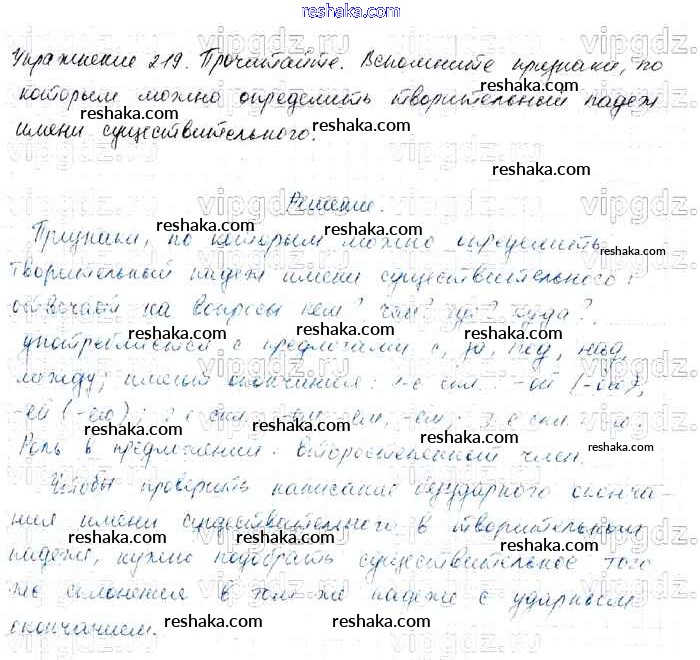 reshaka.com
Упражнение 219. Прочитайте. Вспомните признаки, по
которым можно определить творительный падеж
имени существительного.
Решение.
Признаки, по которым можно определить
творительный падеж имени существительного:
отвечает на вопросы кем? чем? где? куда?;
употребляется с предлогами с, за, под, над,
между; имеет окончания: 1-е скл. -ой (-ою),
-ей (-ею); 2-е скл. -ом, -ем, -ём; 3-е скл. -ю.
Роль в предложении: второстепенный член.
Чтобы проверить написание безударного оконча-
ния имени существительного в творительном
падеже, нужно подобрать существительное того
же склонения в том же падеже с ударным
окончанием.